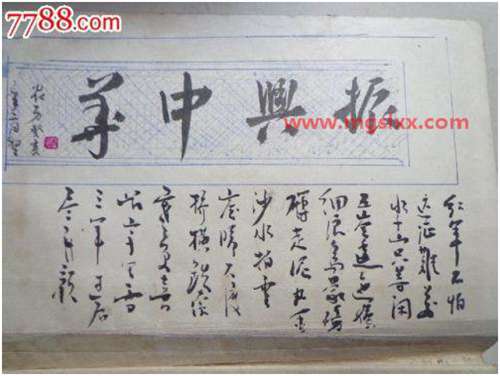 7788.com
www.mgsixx.com
振興中华
红军不怕
远征难万
水千山只等闲
五岭逶迤腾
细浪乌蒙磅
礴走泥丸金
沙水拍云
崖暖大渡
桥横铁索
寒更喜岷
山千里雪
三军过后
尽开颜